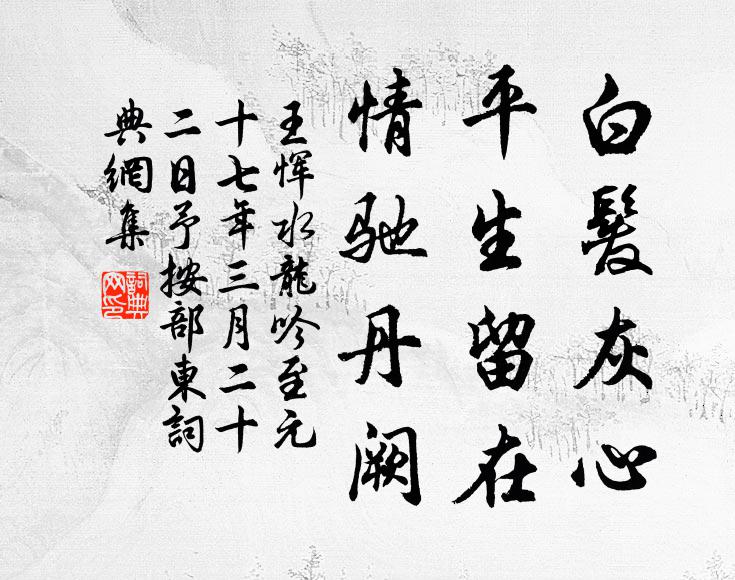 白髮灰心
平生留在
情馳丹闕
王惲水龍吟至元
十七年三月二十
二日予按部東詞
典網集
詞典
网印